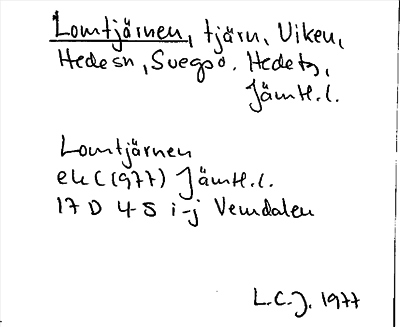 Lomtjärnen, tjärn, Viken,
Hedesn, Svegs o. Hedets,
Jämtl.l.
Lomtjärnen
ek C (1977) Jämtl.l.
17 D 4-5 i-j Vemdalen
L.C.J. 1977